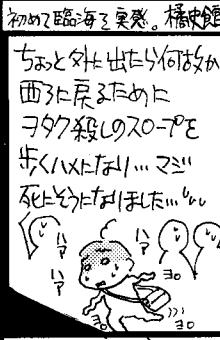 初めて臨海を実感。橘史館
ちょっと外に出たら何故か
西3に戻るために
ヲタク殺しのスロープを
歩くハメになり…マジ
死にそうになりました…
ハァ
ハァ
ハァ
ハァ
ヨロ
ヨロ